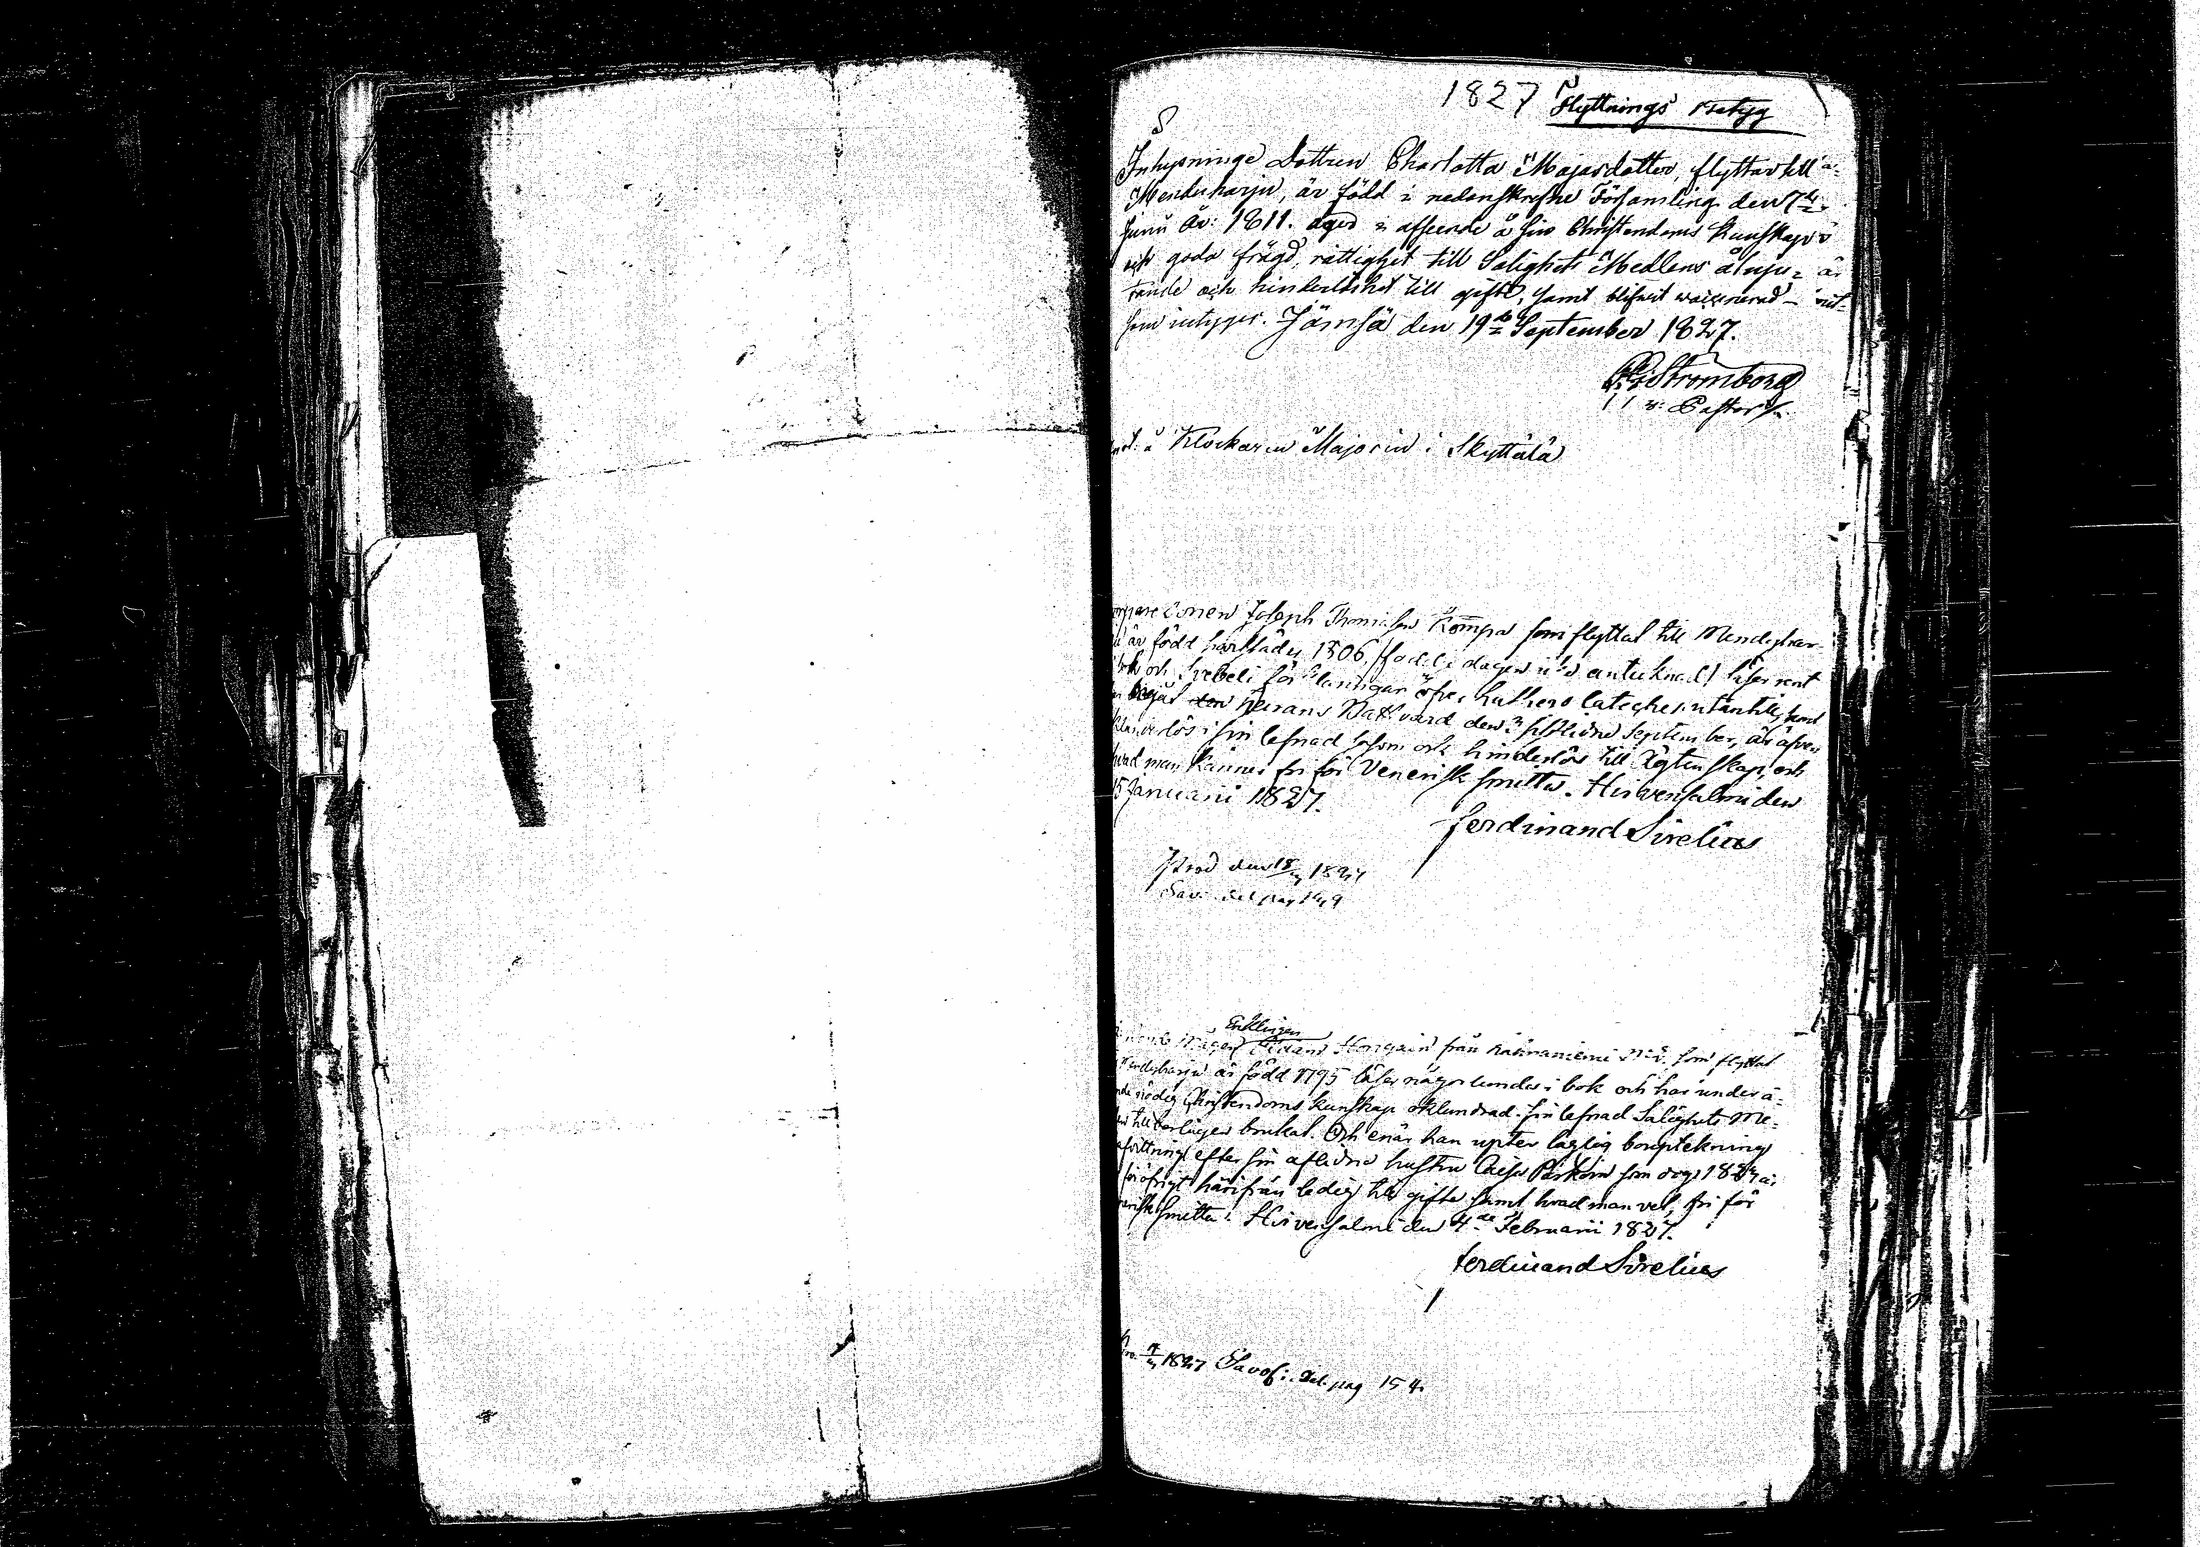 1827 Flyttnings Betyg
Inhysninge Dottren Charlotta Majasdotter, flyttar till
Mendeharju, är född i nedanskrefne Församling den 7de
Junii År: 1811. äger i afseende å sin Christendoms kunskap
och goda frägd, rättighet till Salighets Medlens åtnju-
tande och hinderlöshet till gifte, samt blifvit vaccinerad
som intygar. Jämsä den 19de September 1827.
Stromborg
v: Pastor
å Klockaren Majorin i Skyttälä
sonen Joseph Thomasson Kompa som flyttat till Mendyhar-
är född härstädes 1806, läser rent
bok och Svebeli förklaringar öfver Lutheri Cateches utantill, samt
begåt den Herrans Nattvard den sistlidne September, är äfven
klanderlös i sin lefnad såsom och hinderlös till Ägtenskap, och
hvad man känner fri för Venerisk smitta. Hirvensalmi den
15 Januarii 1827.
Ferdinand Sirelius
Prod den 18/ 1827
Sav: del pag 149
Enklingen
från Kähräniemi som flyttat
Mendyharju är född 1795 läser någorlunda i bok och har under å-
nödig Christendoms kunskap oklandrad i sin lefnad Salighets Me-
brukat. Och enär han uptee laglig bouptekning
efter sin aflidna hustru Caisa som dog 182 är
föröfrigt härifrån ledig till gifte samt hvad man vet, fri för
smitta. Hirvensalmi den 4de Februarii 1827.
Ferdinand Sirelius
1827 Savol: del. pag 154.